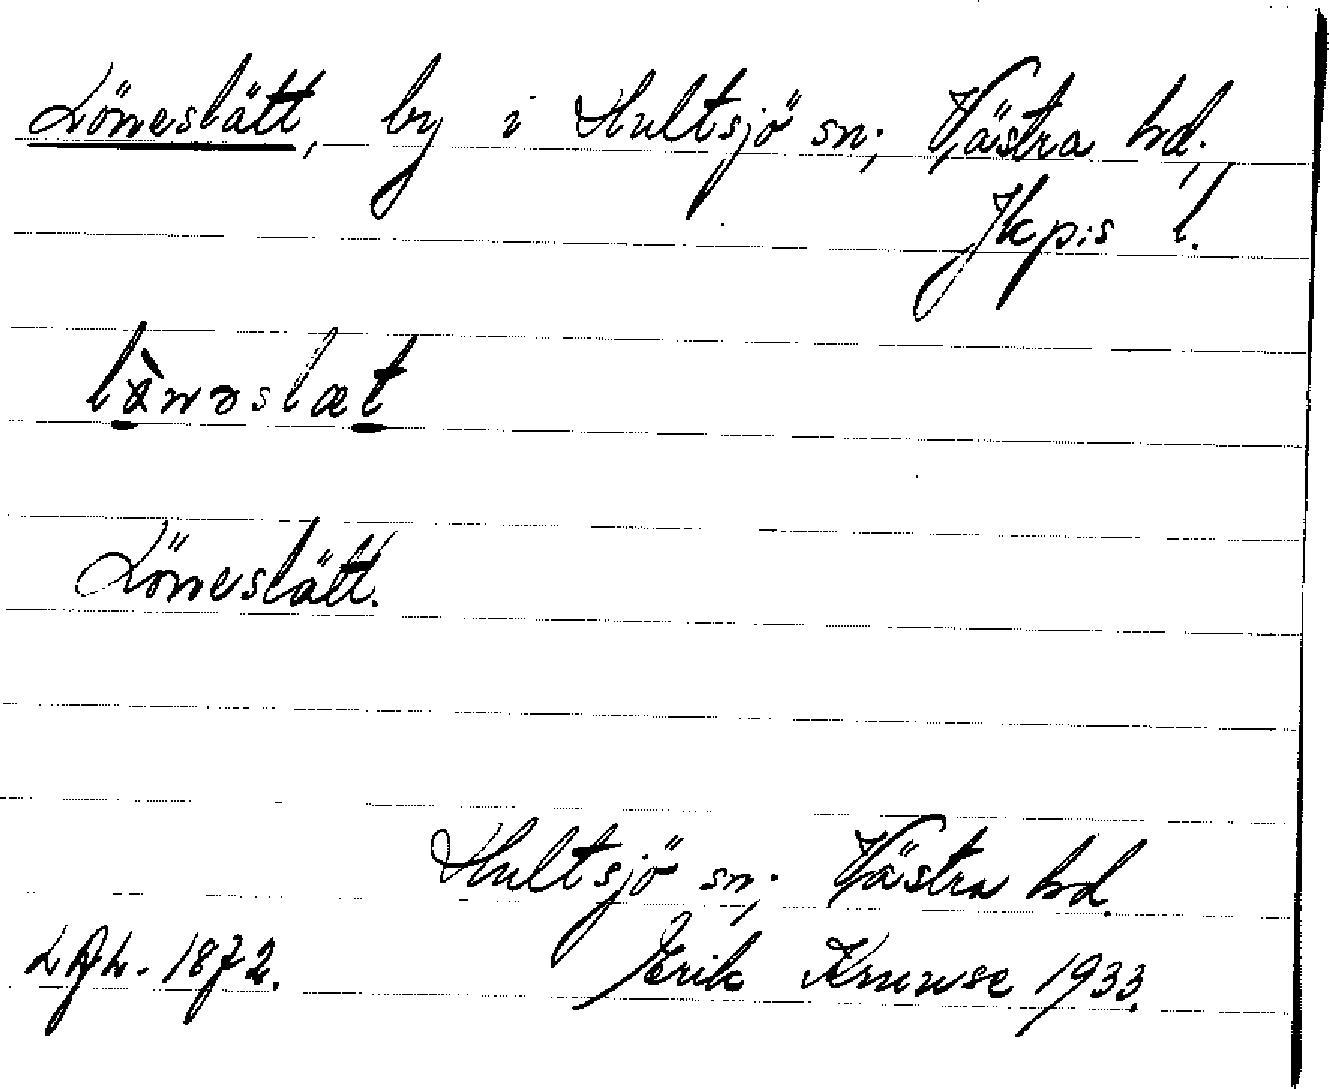 Löneslätt, by i Hultsjö sn; Västra hd.,
Jkpis l.
Löneslätt.
Hultsjö sn; Västra hd.
1872.
Erik Kruuse 1933.